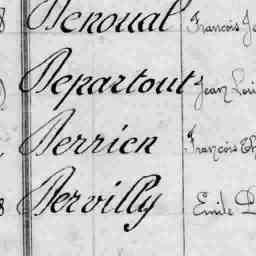 Denoual François Je
Departout Jean Loui
Derrien François Th
8 Dervilly Emile